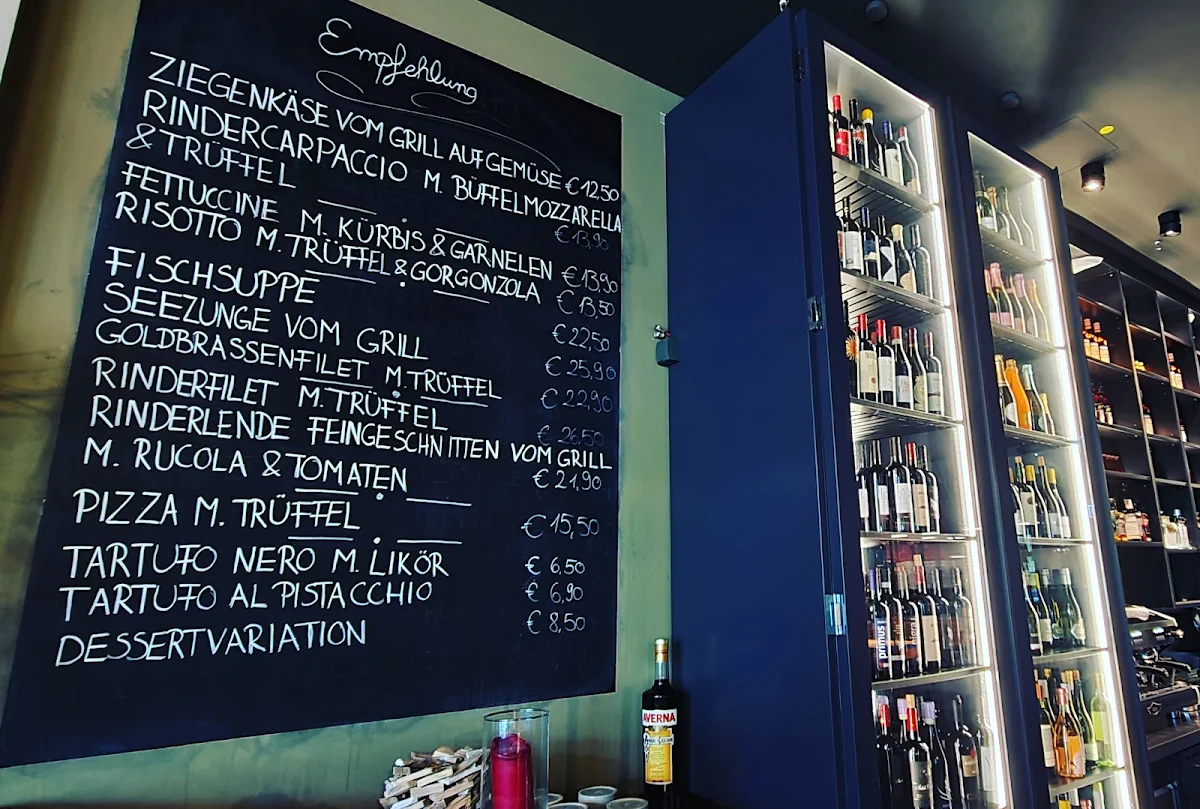 Empfehlung
ZIEGENKÄSE VOM GRILL AUF GEMÜSE € 12,50
RINDERCARPACCIO M. BÜFFELMOZZARELLA
& TRÜFFEL € 13,90
FETTUCCINE M. KÜRBIS & GARNELEN € 13,90
RISOTTO M. TRÜFFEL & GORGONZOLA € 13,50
FISCHSUPPE € 22,50
SEEZUNGE VOM GRILL € 25,90
GOLDBRASSENFILET M. TRÜFFEL € 22,90
RINDERFILET M. TRÜFFEL € 26,50
RINDERLENDE FEINGESCHNITTEN VOM GRILL
M. RUCOLA & TOMATEN € 21,90
PIZZA M. TRÜFFEL € 15,50
TARTUFO NERO M. LIKÖR € 6,50
TARTUFO AL PISTACCHIO € 6,90
DESSERTVARIATION € 8,50
AVERNA
primus